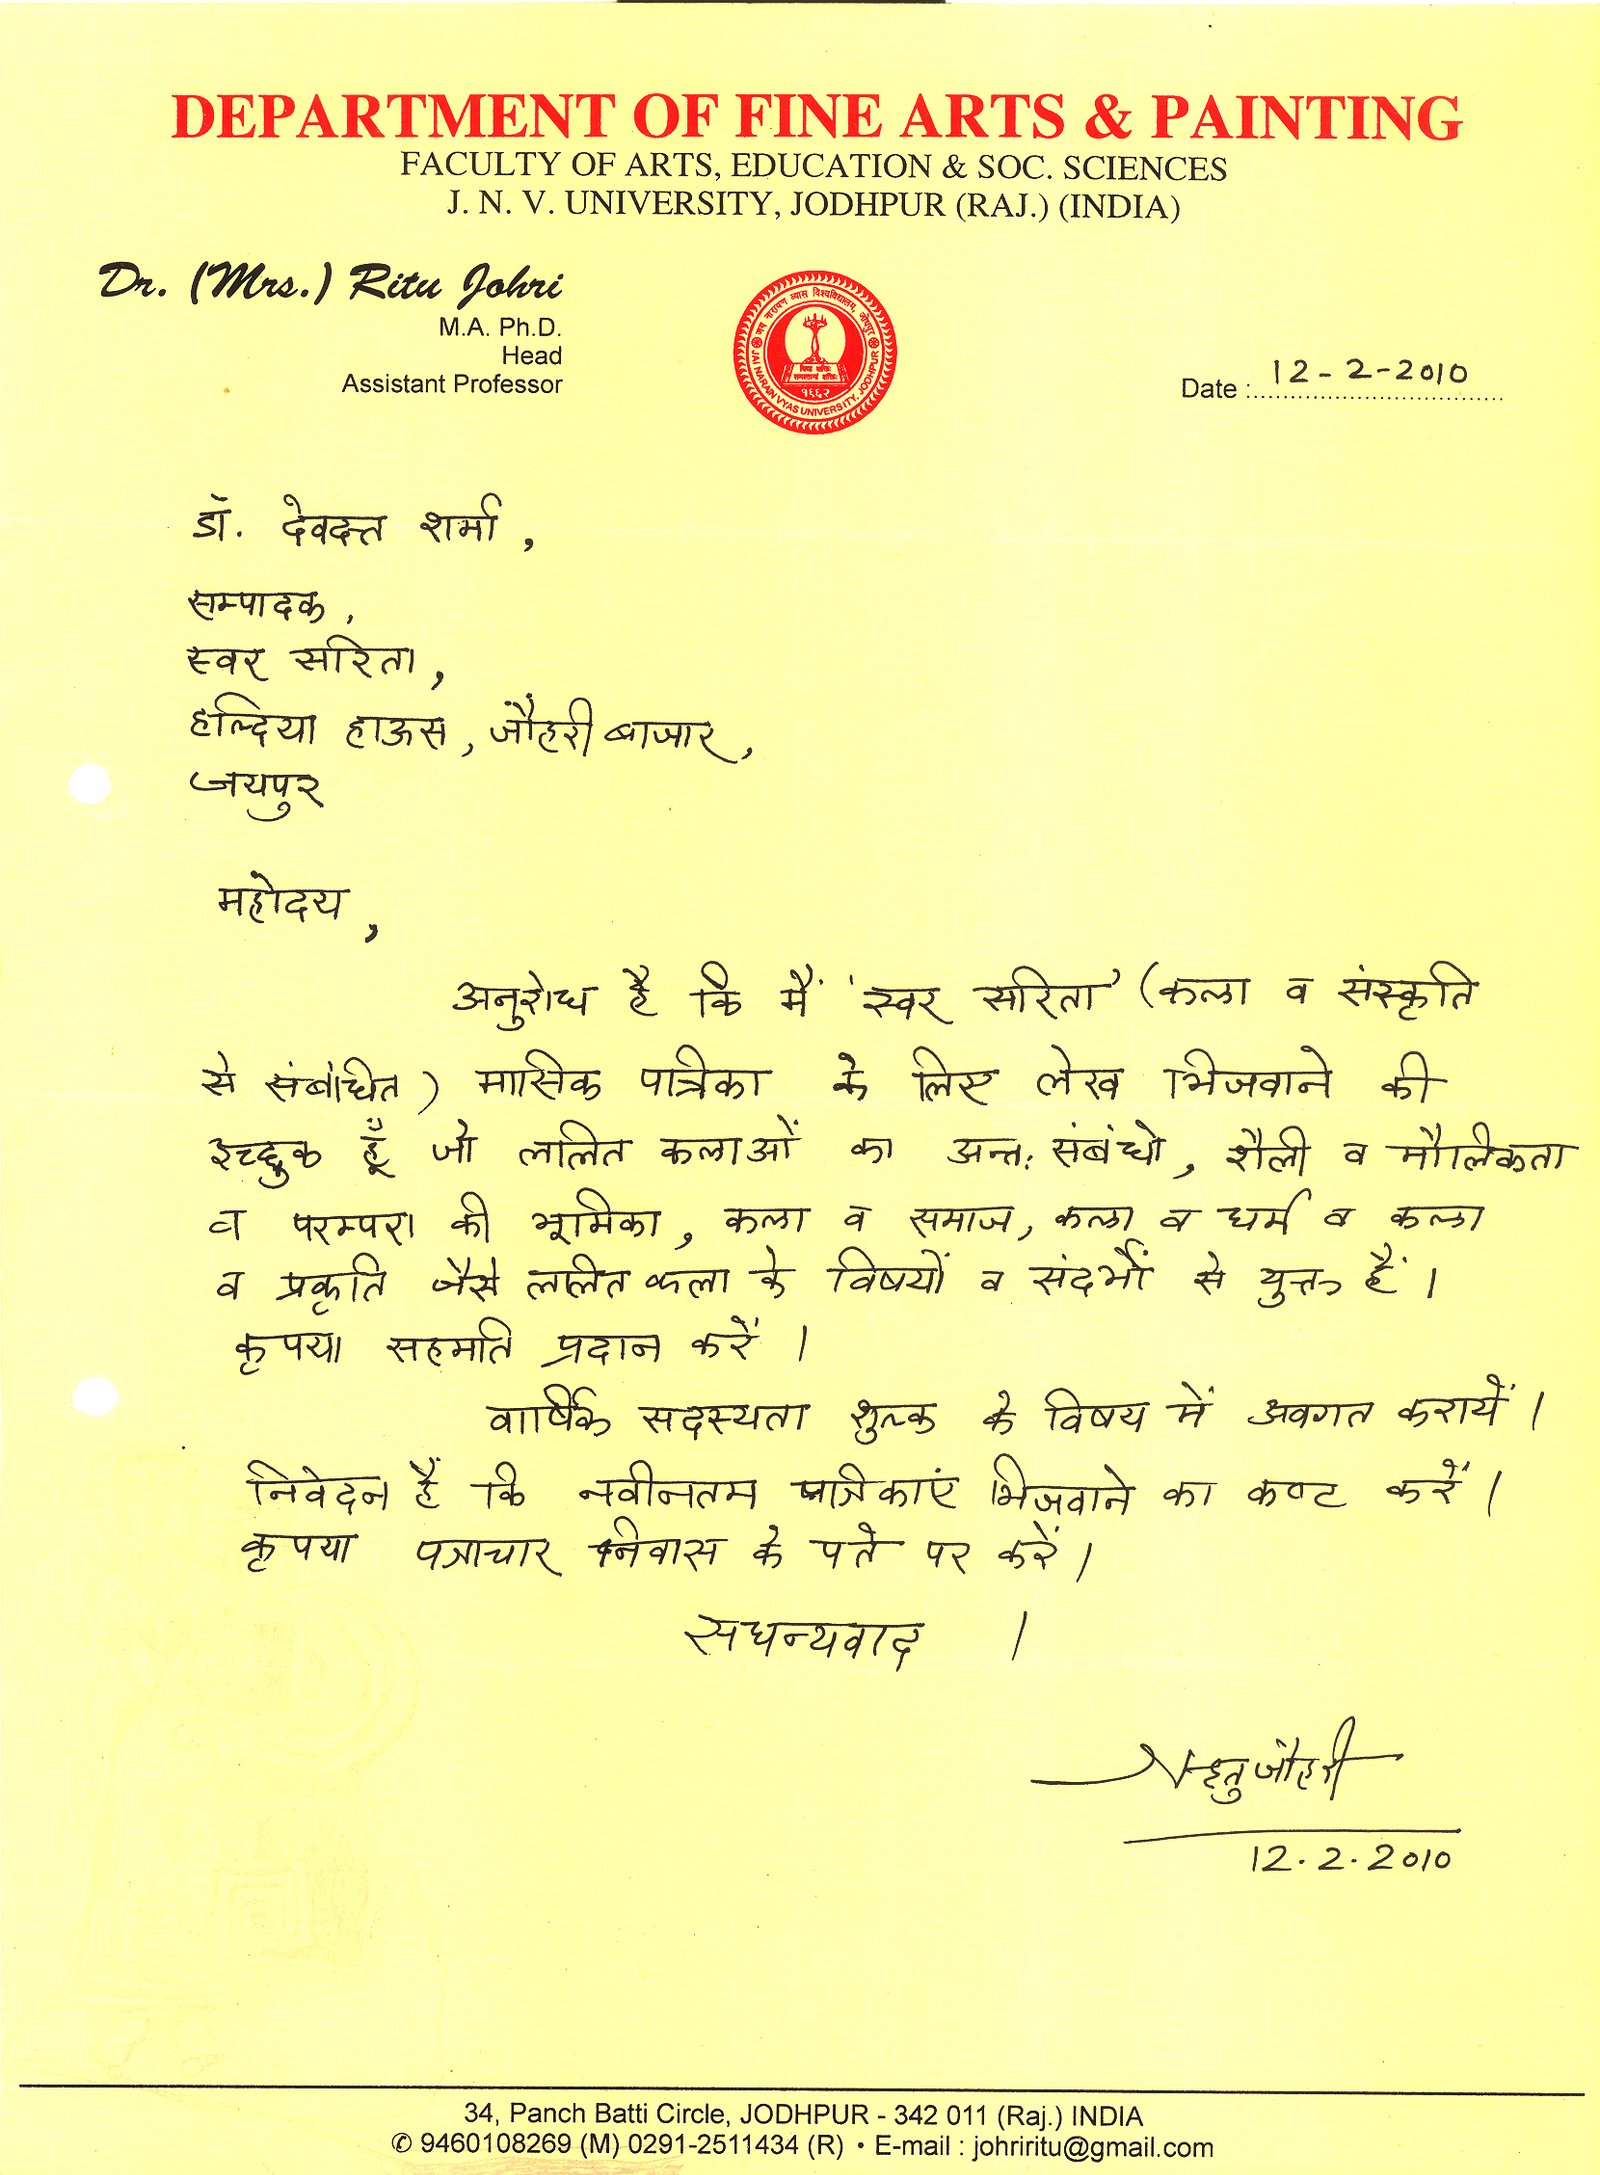 DEPARTMENT OF FINE ARTS & PAINTING
FACULTY OF ARTS, EDUCATION & SOC. SCIENCES
J. N. V. UNIVERSITY, JODHPUR (RAJ.) (INDIA)
Dr. (Mrs.) Ritu Johri
M.A. Ph.D.
Head
Assistant Professor
जय नारायण व्यास विश्वविद्यालय, जोधपुर
JAI NARAIN VYAS UNIVERSITY, JODHPUR
१९६२
Date : 12-2-2010
डॉ. देवदत्त शर्मा,
सम्पादक,
स्वर सरिता,
हल्दिया हाऊस, जौंहरी बाजार,
जयपुर
महोदय,
अनुरोध है कि मैं 'स्वर सरिता' (कला व संस्कृति
से संबंधित) मासिक पत्रिका के लिए लेख भिजवाने की
इच्छुक हूँ जो ललित कलाओं का अन्त: संबंधो, शैली व मौलिकता
व परम्परा की भूमिका, कला व समाज, कला व धर्म व कला
व प्रकृति जैसे ललित कला के विषयों व संदर्भों से युक्त हैं।
कृपया सहमति प्रदान करें।
वार्षिक सदस्यता शुल्क के विषय में अवगत करायें।
निवेदन हैं कि नवीनतम पत्रिकाएं भिजवाने का कष्ट करें।
कृपया पत्राचार निवास के पते पर करें।
सधन्यवाद ।
ऋतु जौहरी
12.2.2010
34, Panch Batti Circle, JODHPUR - 342 011 (Raj.) INDIA
✆ 9460108269 (M) 0291-2511434 (R) • E-mail : johriritu@gmail.com